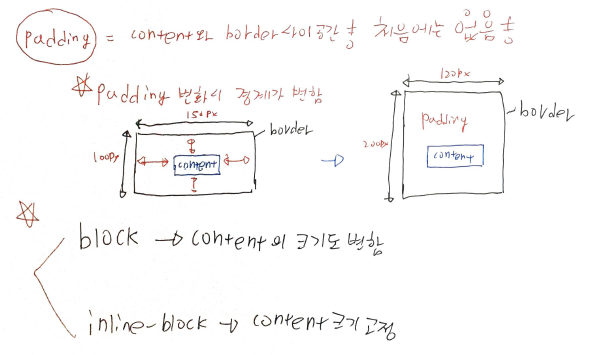 padding = content와 border 사이 공간 처음에는 없음
padding 변화시 경계가 변함
150px
120px
border
100px
content
padding
border
200px
content
block → content의 크기도 변함
inline-block → content 크기 고정